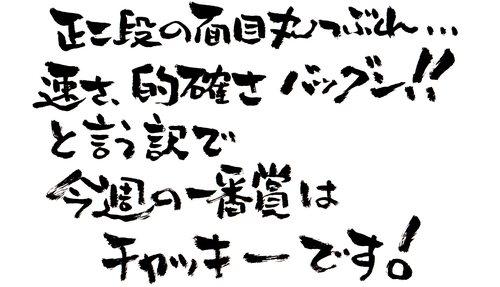 正二段の面目丸つぶれ...
速さ、的確さ バッグン!!
と言う訳で
今週の一番賞は
チャッキーです!